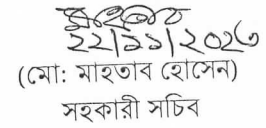 ২২/১১/২০২৩
(মো: মাহতাব হোসেন)
সহকারী সচিব